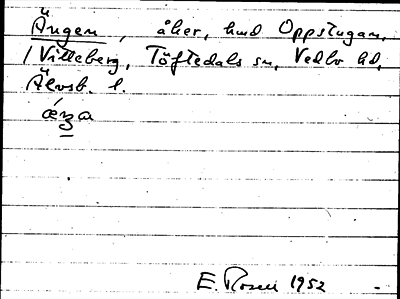 Ängen, åker, hmd Oppstugan,
/ Villeberg, Töftedals sn, Vedbo hd,
Älvsb. l.
E. Rosell 1952